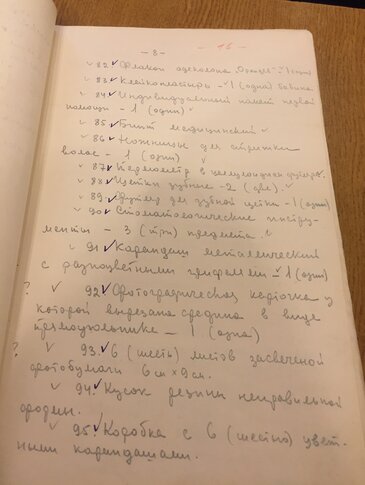 - 8 - - 16 -
82. Флакон одеколона - 1 (один)
83. Клейкопластырь - 1 (одна) бобина
84. Индивидуальный пакет первой
помощи - 1 (один)
85. Бинт медицинский
86. Ножницы для стрижки
волос - 1 (один)
87. Термометр в целлулоидном футляре.
88. Щетки зубные - 2 (две).
89. Футляр для зубной щетки - 1 (один)
90. Стоматологические инстру-
менты - 3 (три) предмета.
91. Карандаш металлический
с разноцветными грифелями - 1 (один)
? 92. Фотографическая карточка у
которой вырезана средина в виде
прямоугольника - 1 (одна)
? 93. 6 (шесть) листов засвеченой
фотобумаги 6 см × 9 см.
94. Кусок резины неправильной
формы.
95. Коробка с 6 (шестью) цвет-
ными карандашами.